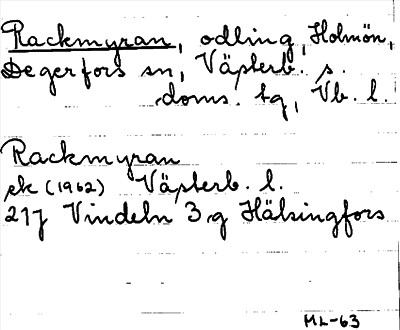 Rackmyran, odling, Holmön,
Degerfors sn, Västerb. s.
doms. tg, Vb. l.
Rackmyran
ek (1962) Västerb. l.
21J Vindeln 3 g Hälsingfors
ML-63